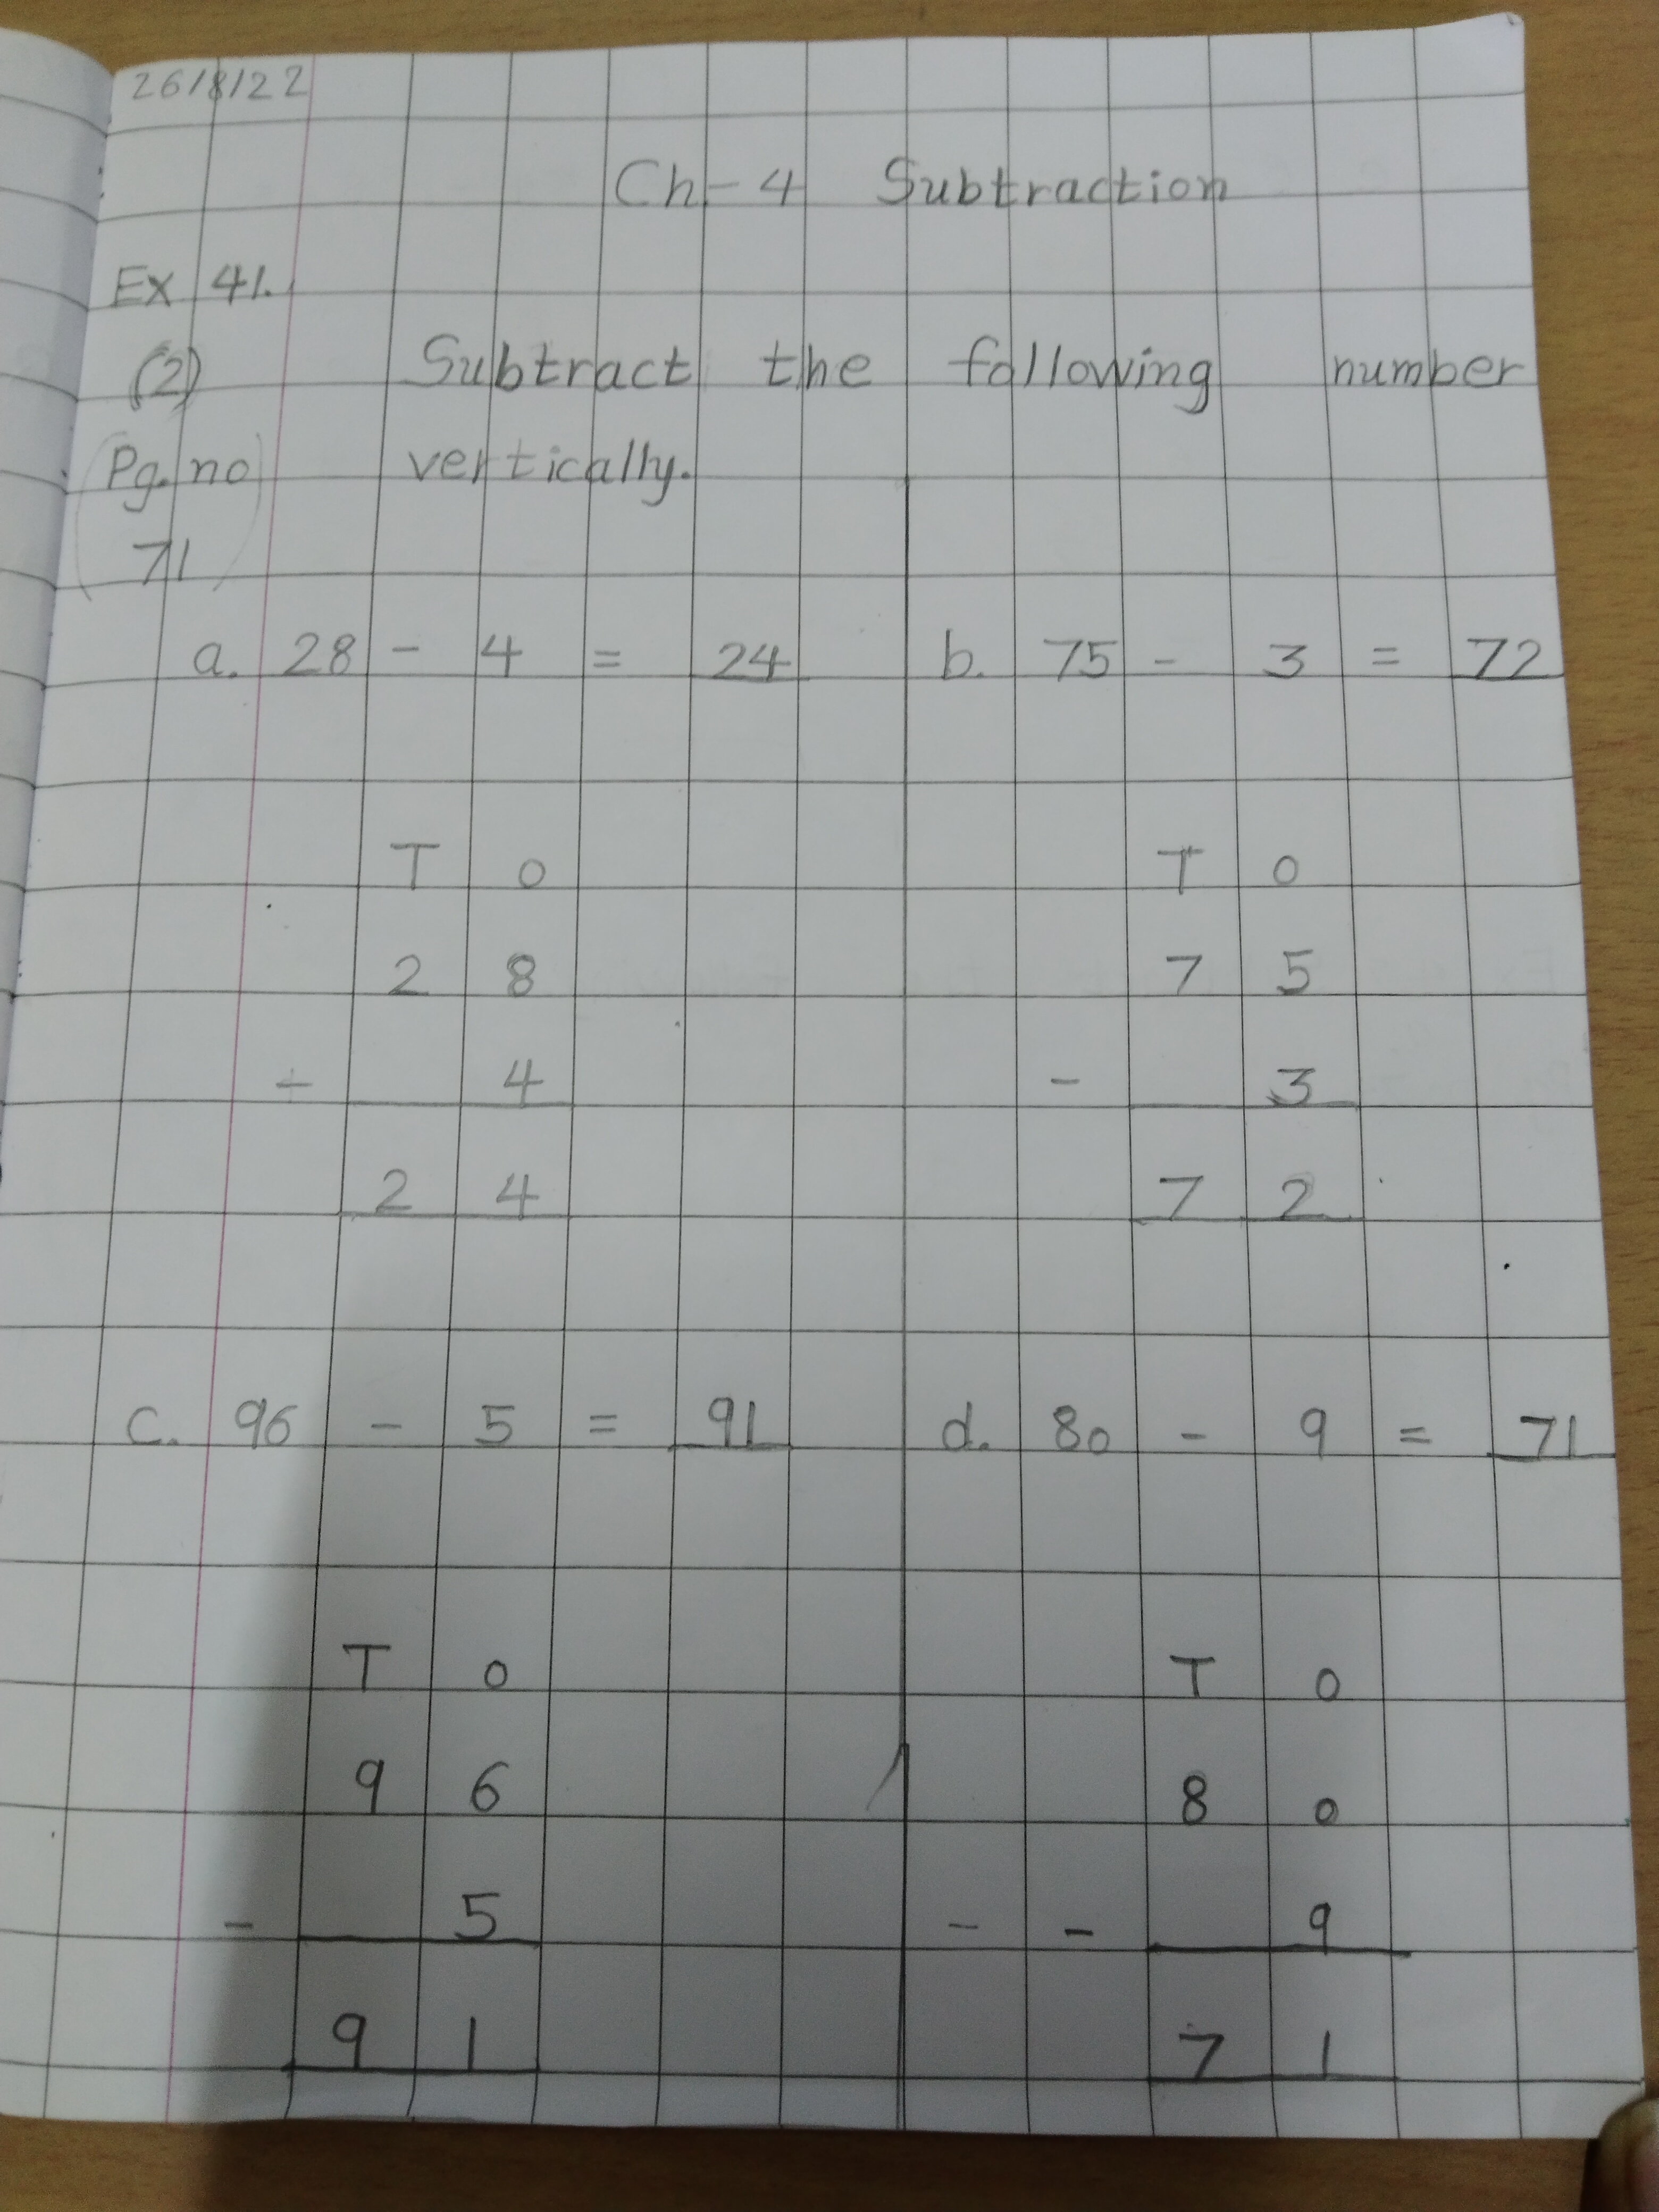 26/8/22
Ch-4 Subtraction
Ex 41.
(2) Subtract the following number
(Pg. no vertically.
71)
a. 28 - 4 = 24
b. 75 - 3 = 72
T O
2 8
- 4
2 4
T O
7 5
- 3
7 2
c. 96 - 5 = 91
d. 80 - 9 = 71
T O
9 6
- 5
9 1
T O
8 0
- - 9
7 1